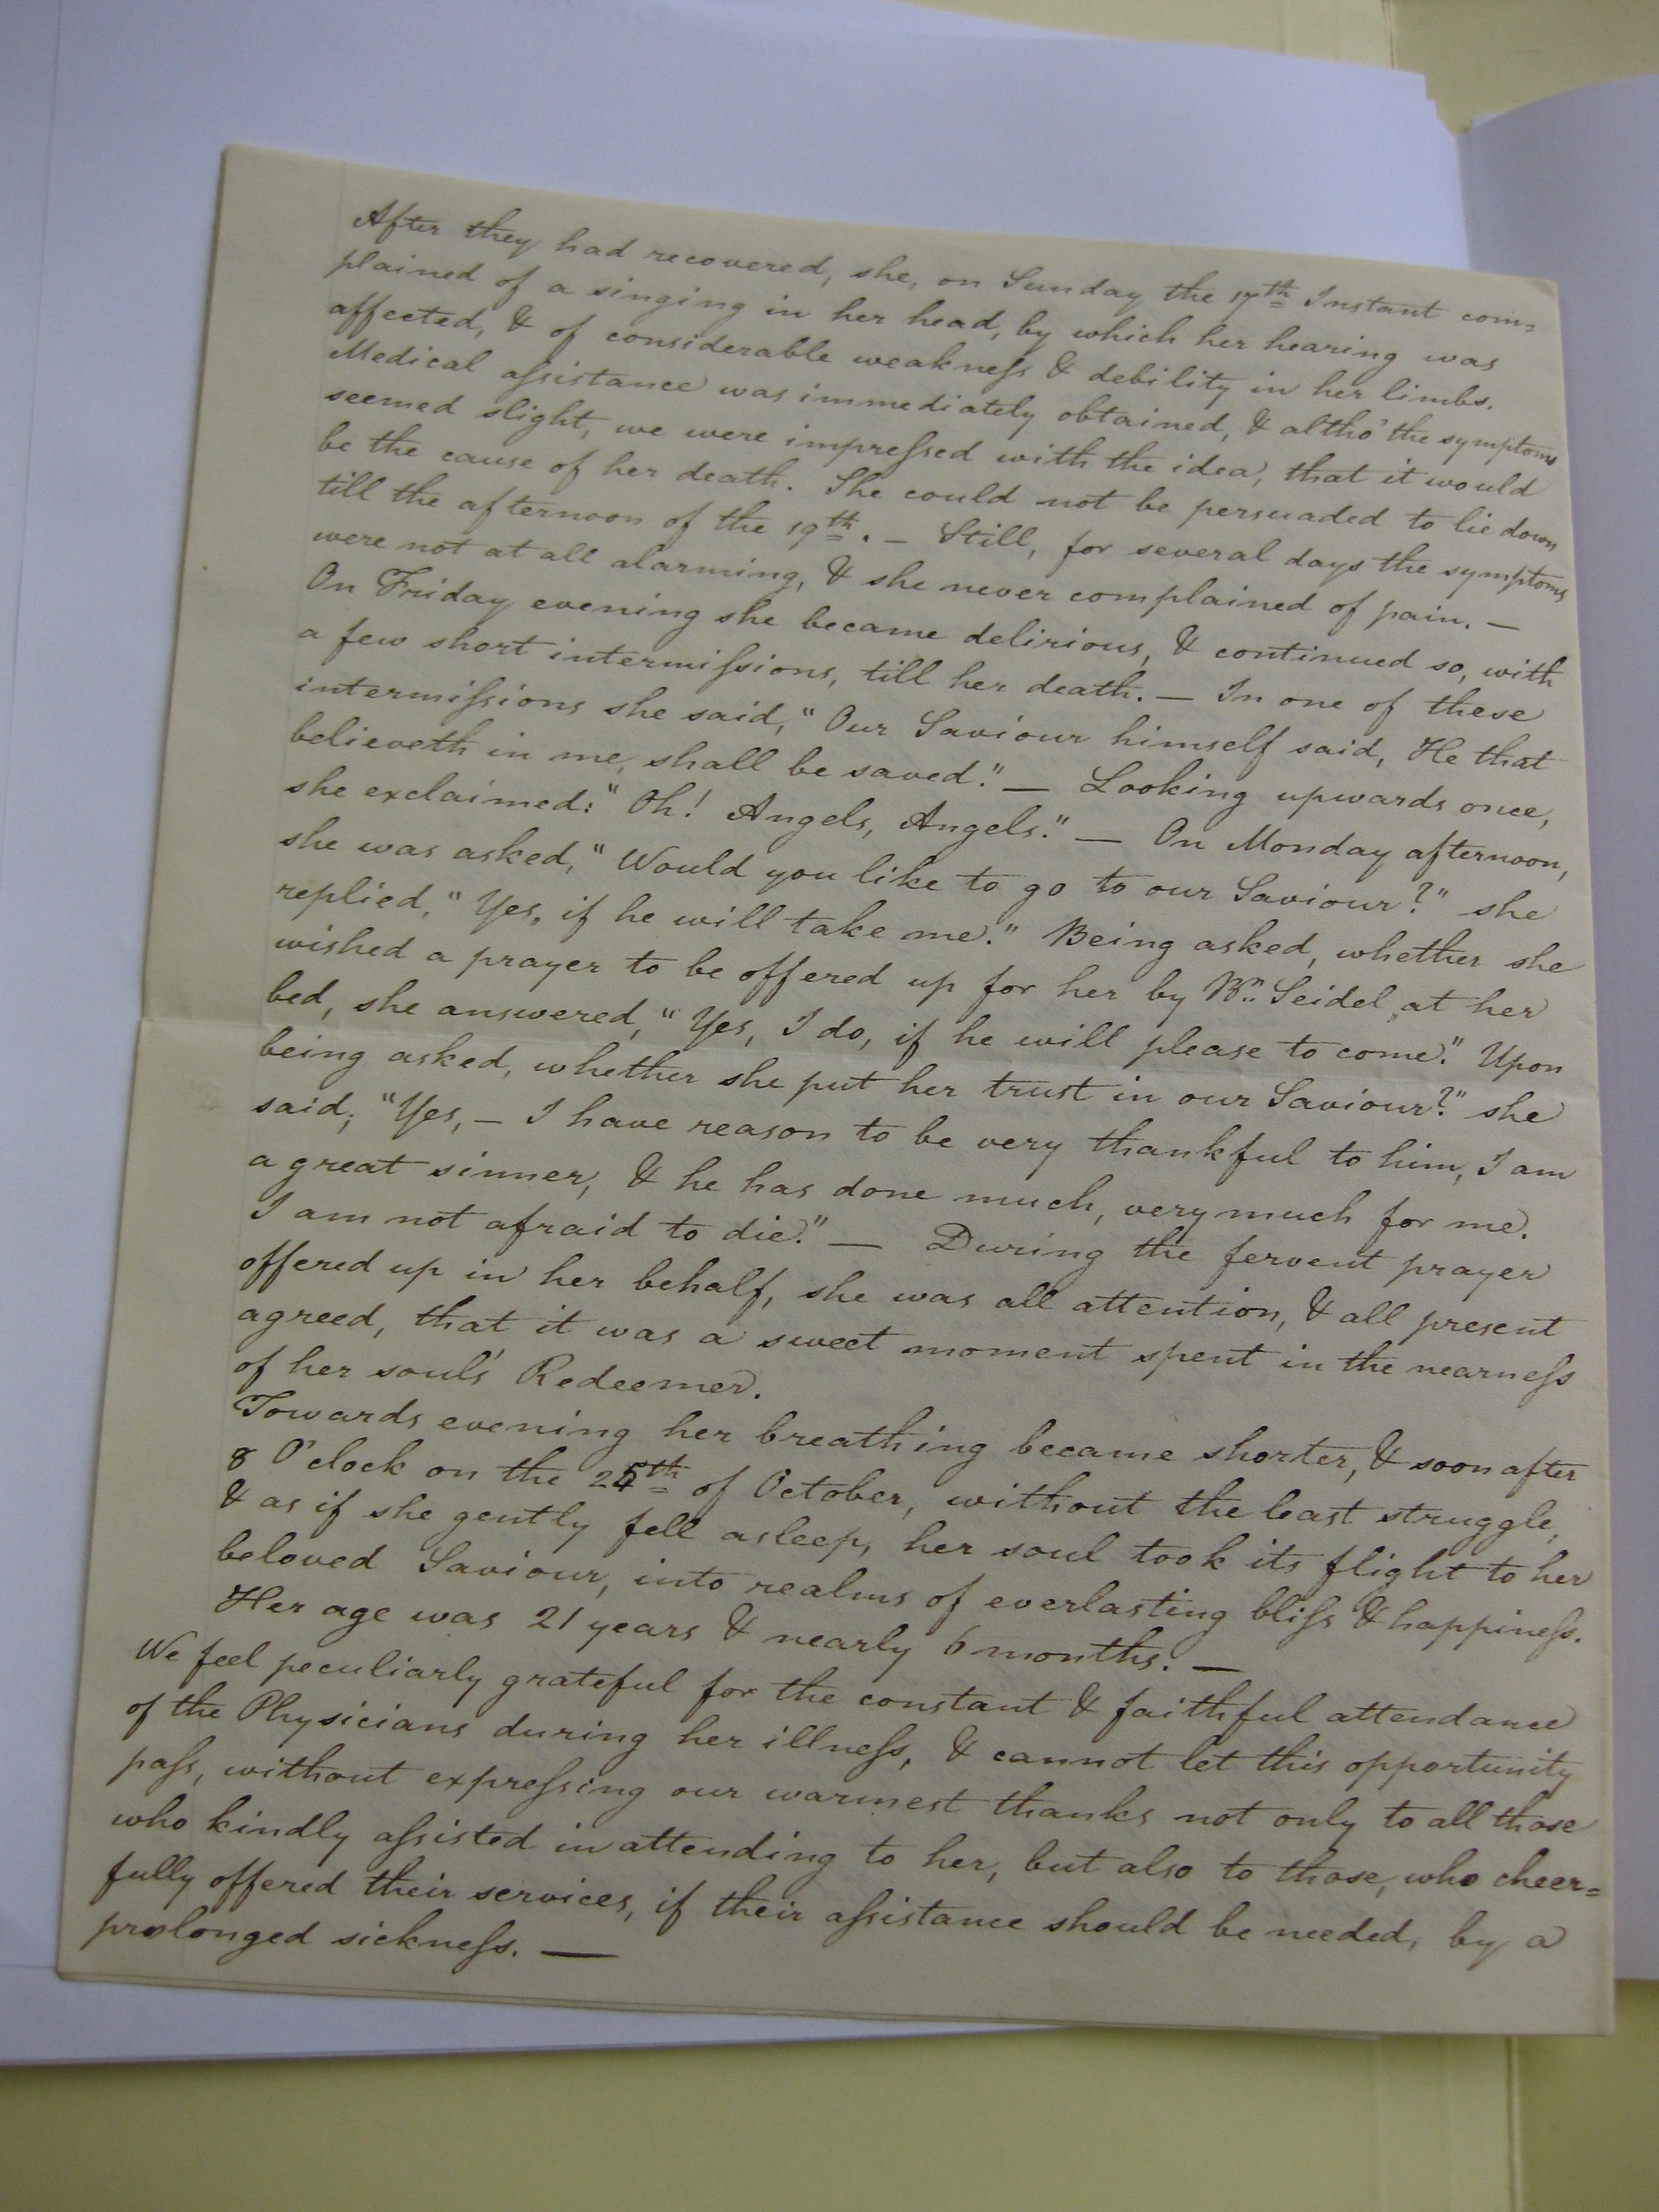 After they had recovered, she, on Sunday the 17th Instant com=
plained of a singing in her head, by which her hearing was
affected, & of considerable weakneſs & debility in her limbs.
Medical aſsistance was immediately obtained, & altho' the symptoms
seemed slight, we were impreſsed with the idea, that it would
be the cause of her death. She could not be persuaded to lie down
till the afternoon of the 19th. — Still, for several days the symptoms
were not at all alarming, & she never complained of pain. —
On Friday evening she became delirious, & continued so, with
a few short intermiſsions, till her death. — In one of these
intermiſsions she said, "Our Saviour himself said, He that
believeth in me, shall be saved." — Looking upwards once,
she exclaimed: "Oh! Angels, Angels." — On Monday afternoon,
she was asked, "Would you like to go to our Saviour?" she
replied, "Yes, if he will take me." Being asked, whether she
wished a prayer to be offered up for her by Br. Seidel, at her
bed, she answered, "Yes, I do, if he will please to come." Upon
being asked, whether she put her trust in our Saviour?" she
said; "Yes, — I have reason to be very thankful to him, I am
a great sinner, & he has done much, very much for me.
I am not afraid to die." — During the fervent prayer
offered up in her behalf, she was all attention, & all present
agreed, that it was a sweet moment spent in the nearneſs
of her soul's Redeemer.
Towards evening her breathing became shorter, & soon after
8 O'clock on the 25th of October, without the least struggle,
& as if she gently fell asleep, her soul took its flight to her
beloved Saviour, into realms of everlasting bliſs & happineſs.
Her age was 21 years & nearly 6 months. —
We feel peculiarly grateful for the constant & faithful attendance
of the Physicians during her illneſs, & cannot let this opportunity
paſs, without expreſsing our warmest thanks not only to all those
who kindly aſsisted in attending to her, but also to those, who cheer=
fully offered their services, if their aſsistance should be needed, by a
prolonged sickneſs. —